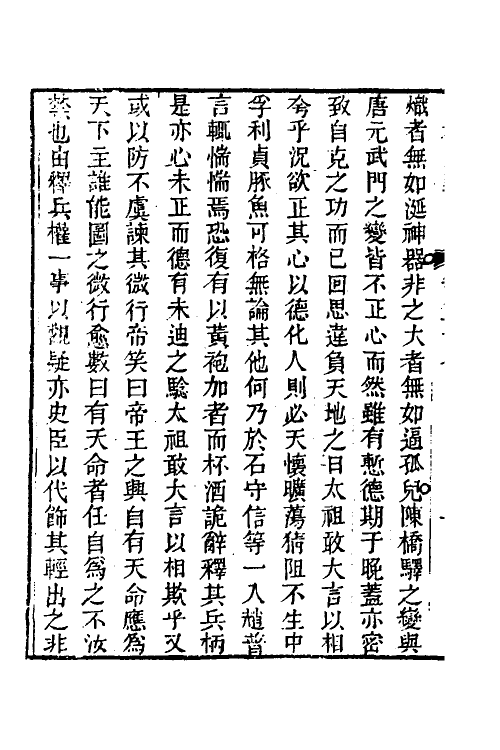 熾者無如涎神器非之大者無如逼孤兒陳橋驛之變與
唐元武門之變皆不正心而然雖有慙德期于晚蓋亦密
致自克之功而已回思違負天地之日太祖敢大言以相
夸乎況欲正其心以德化人則必天懷曠蕩猜阻不生中
孚利貞豚魚可格無論其他何乃於石守信等一入趙普
言輒惴惴焉恐復有以黃袍加者而杯酒詭辭釋其兵柄
是亦心未正而德有未迪之驗太祖敢大言以相欺乎又
或以防不虞諫其微行帝笑曰帝王之興自有天命應爲
天下主誰能圖之微行愈數曰有天命者任自爲之不汝
禁也由釋兵權一事以觀疑亦史臣以代飾其輕出之非